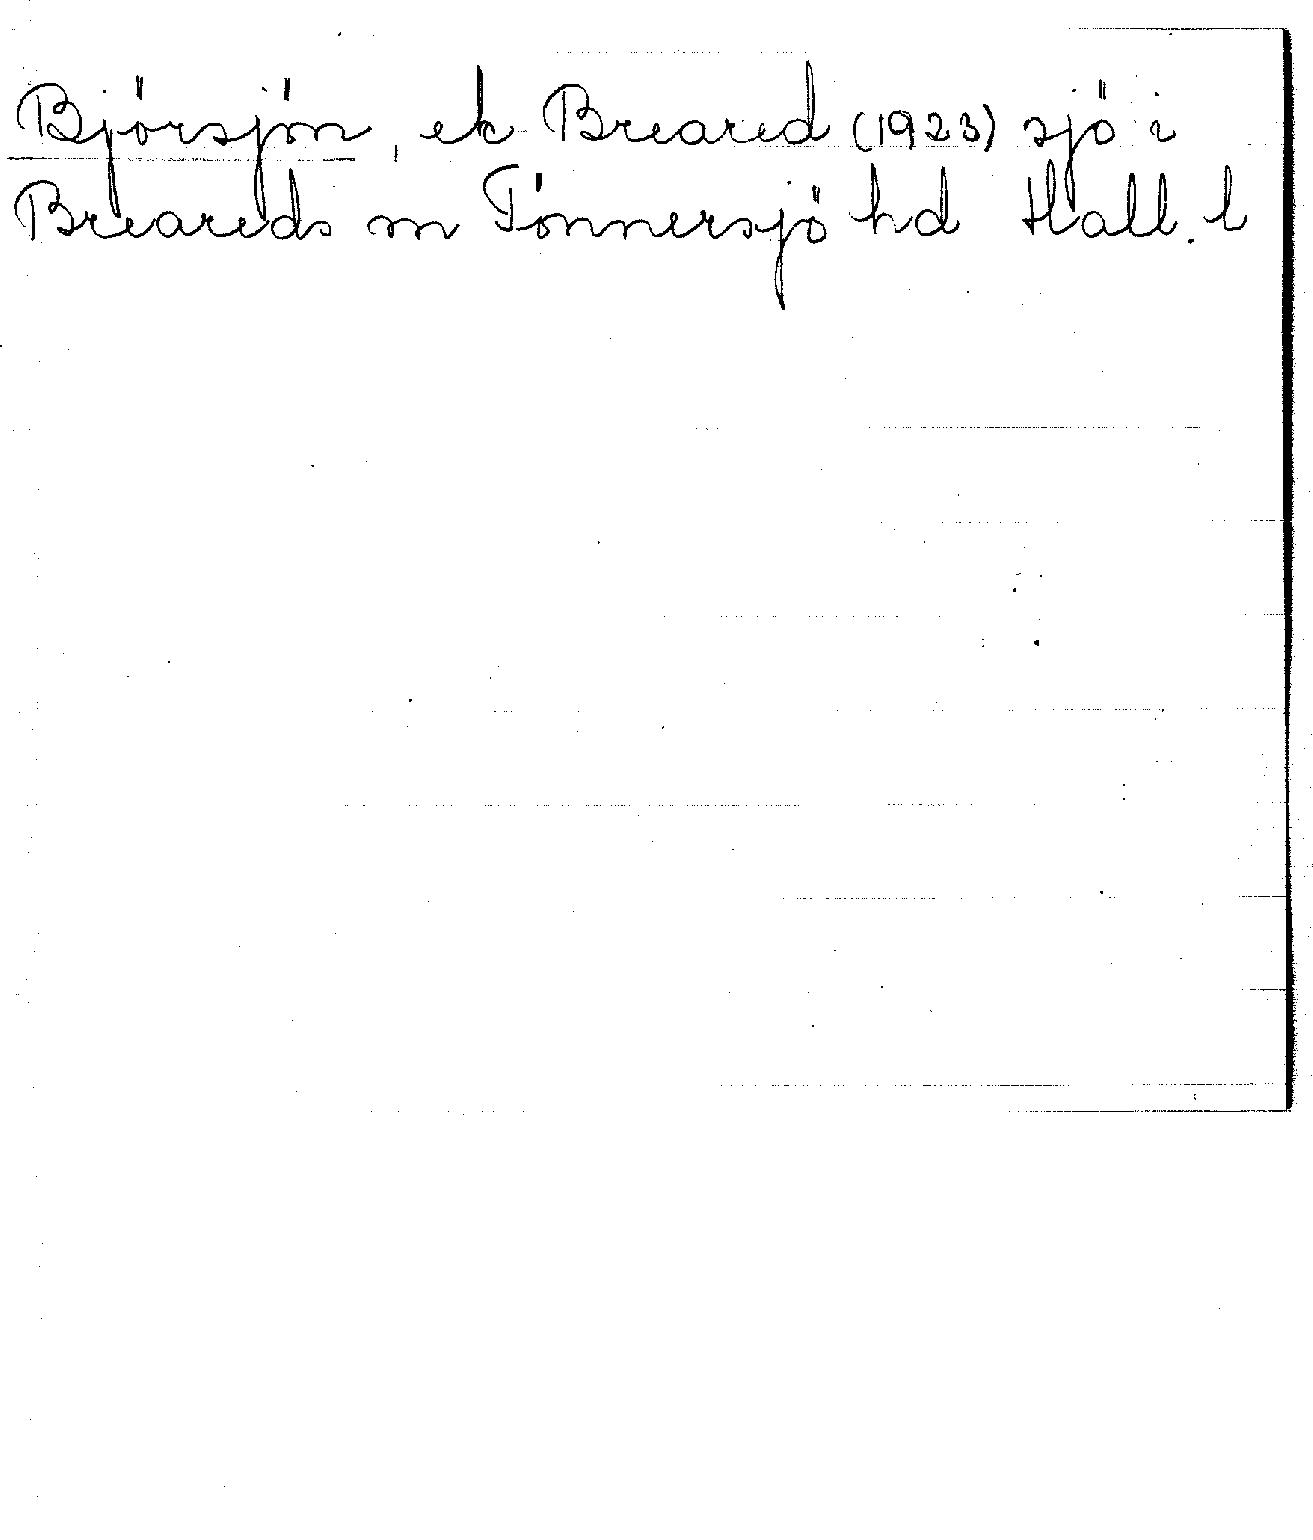 Björsjön, ek Breared (1923) sjö i
Breareds sn Tönnersjö hd Hall. l